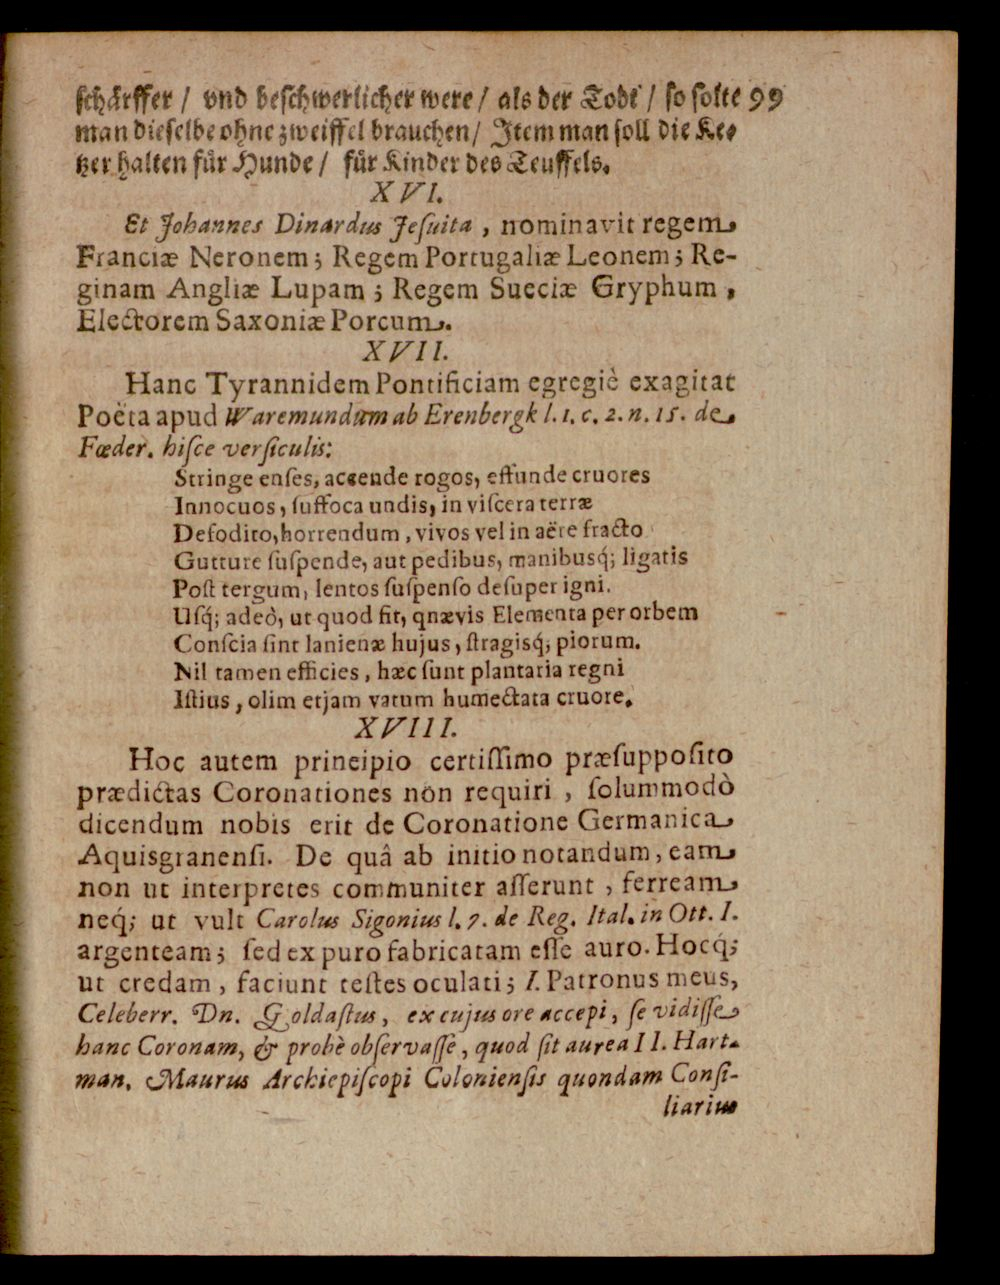 schärffer / vnd beschwerlicher were / als der Todt / so solte 99
man dieselbe ohne zweiffel brauchen / Jtem man soll die Ke-
tzer halten für Hunde / für Kinder des Teuffels.
XVI.
Et Johannes Dinardus Jeſuita , nominavit regem
Franciæ Neronem ; Regem Portugaliæ Leonem ; Re-
ginam Angliæ Lupam ; Regem Sueciæ Gryphum ,
Electorem Saxoniæ Porcum.
XVII.
Hanc Tyrannidem Pontificiam egregiè exagitat
Poëta apud Waremundum ab Erenbergk l. 1. c. 2. n. 15. de
Fœder. hiſce verſiculis:
Stringe enſes, accende rogos, effunde cruores
Innocuos , ſuffoca undis, in viſcera terræ
Defodito, horrendum , vivos vel in aëre fracto
Gutture ſuſpende, aut pedibus, manibusq́; ligatis
Poſt tergum, lentos ſuſpenſo deſuper igni.
Uſq́; adeò, ut quod fit, qnævis Elementa per orbem
Conſcia ſint lanienæ hujus , ſtragisq́; piorum.
Nil tamen efficies , hæc ſunt plantaria regni
Iſtius , olim etjam vatum humectata cruore.
XVIII.
Hoc autem principio certiſſimo præſuppoſito
prædictas Coronationes non requiri , ſolummodò
dicendum nobis erit de Coronatione Germanica
Aquisgranenſi. De quâ ab initio notandum, eam
non ut interpretes communiter aſſerunt , ferream
neq́; ut vult Carolus Sigonius l. 7. de Reg. Ital. in Ott. I.
argenteam ; ſed ex puro fabricatam eſſe auro. Hocq́;
ut credam , faciunt teſtes oculati ; I. Patronus meus,
Celeberr. Dn. Goldaſtus , ex cujus ore accepi , ſe vidiſſe
hanc Coronam, & probè obſervaſſe , quod ſit aurea II. Hart-
man. Maurus Archiepiſcopi Colonienſis quondam Conſi-
liarius